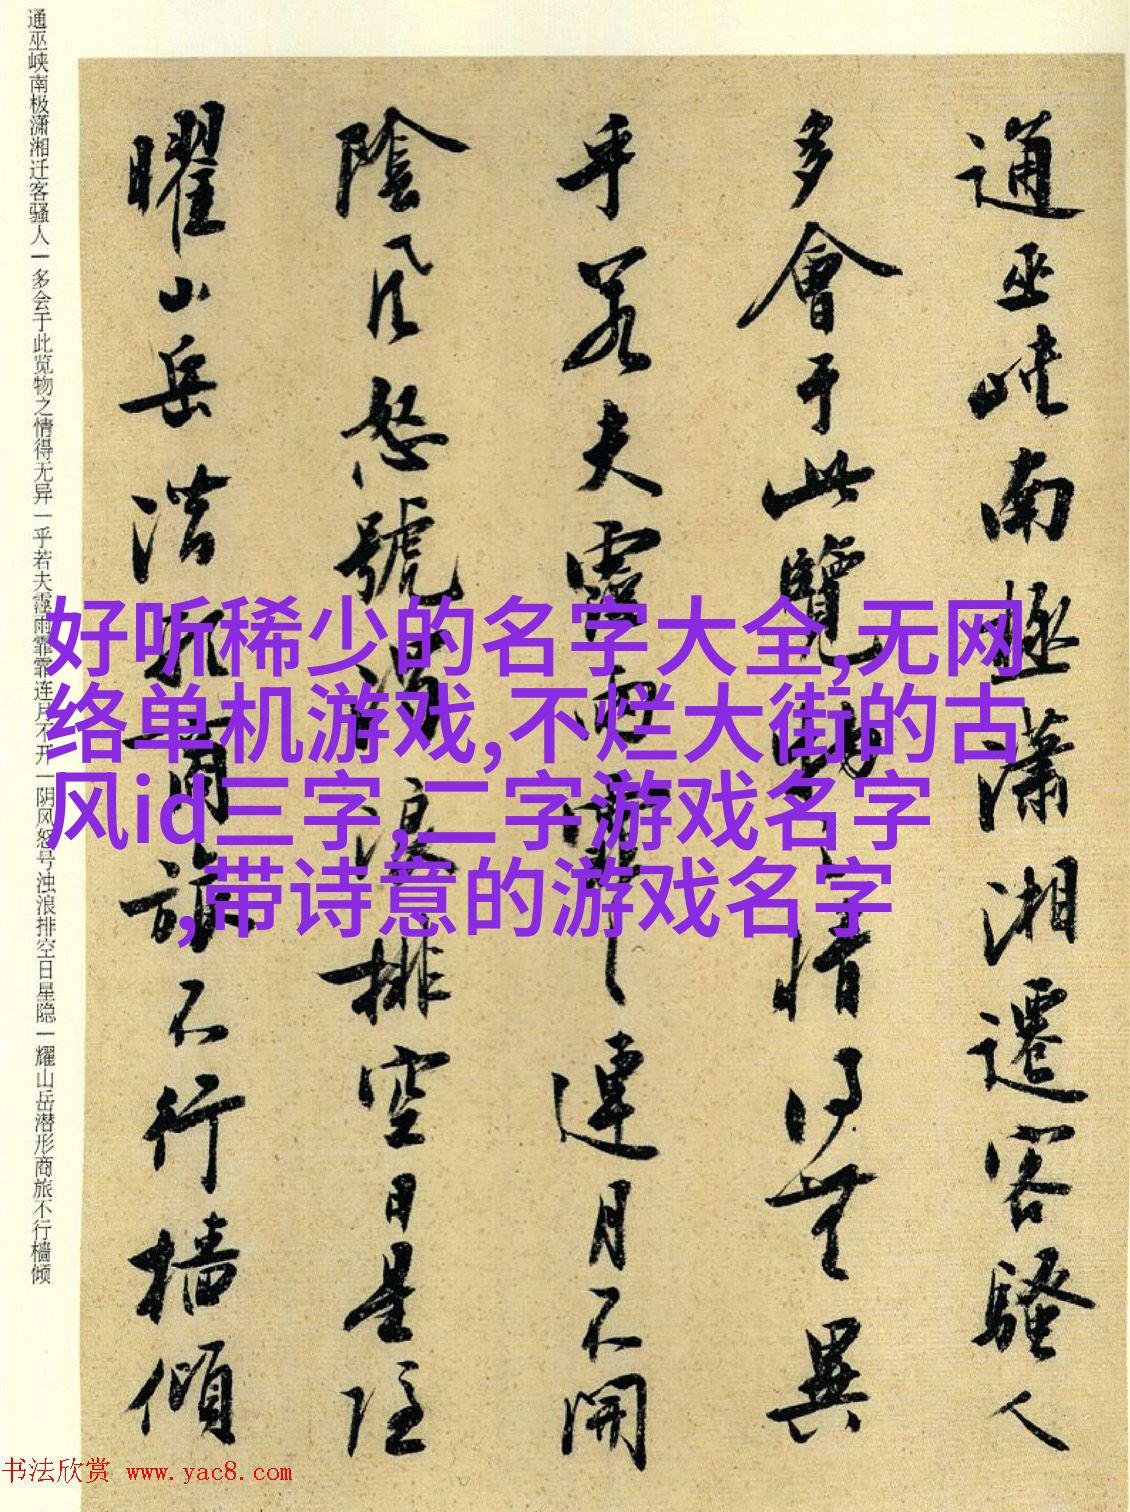 通巫峡南极潇湘迁客骚人一多会于此览物之情得无异一乎若夫霪雨霏霏连月不开一阴风怒号浊浪排空日星隐一耀山岳潜形商旅不行樯倾
通巫峽南極瀟湘遷客騷人
多會于此覽物之情得無異
乎若夫霪雨霏〻連月不開
陰風怒號濁浪排空日星隱
曜山岳潜形商旅不行檣傾
好听稀少的名字大全,无网
络单机游戏,不烂大街的古
风id三字,二字游戏名字
,带诗意的游戏名字
书法欣赏 www.yac8.com